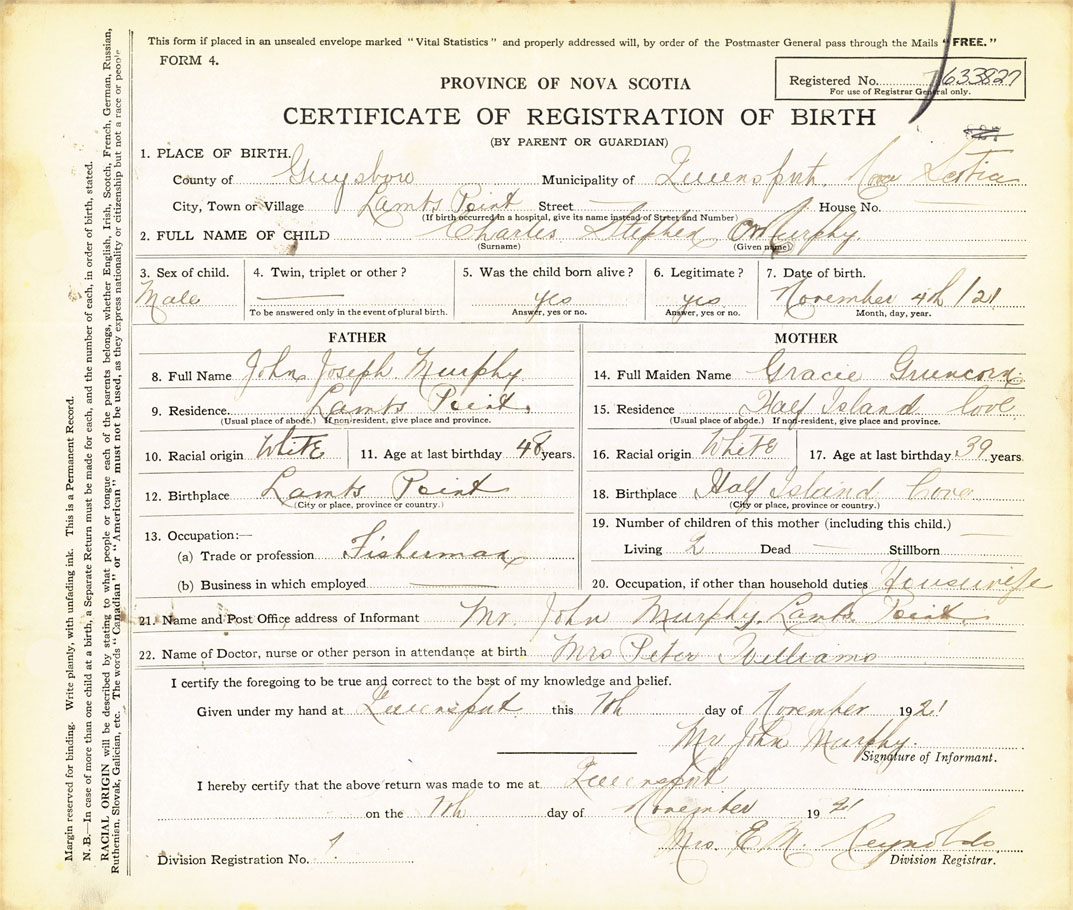 This form if placed in an unsealed envelope marked "Vital Statistics" and properly addressed will, by order of the Postmaster General pass through the Mails "FREE."
FORM 4.
Registered No. 633827
For use of Registrar General only.
PROVINCE OF NOVA SCOTIA
CERTIFICATE OF REGISTRATION OF BIRTH
(BY PARENT OR GUARDIAN)
1. PLACE OF BIRTH.
County of Guysboro Municipality of Queensport, Nova Scotia
City, Town or Village Lambs Point Street House No.
(If birth occurred in a hospital, give its name instead of Street and Number)
2. FULL NAME OF CHILD Charles Stephen Murphy.
(Surname) (Given name)
3. Sex of child. Male
4. Twin, triplet or other?
To be answered only in the event of plural birth.
5. Was the child born alive? yes
Answer, yes or no.
6. Legitimate? yes
Answer, yes or no.
7. Date of birth. November 4th /21
Month, day, year.
FATHER
8. Full Name John Joseph Murphy
9. Residence. Lambs Point.
(Usual place of abode.) If non-resident, give place and province.
10. Racial origin White 11. Age at last birthday 48 years.
12. Birthplace Lambs Point
(City or place, province or country.)
13. Occupation:—
(a) Trade or profession Fisherman
(b) Business in which employed
MOTHER
14. Full Maiden Name Gracie Gruncorn
15. Residence Half Island Cove
(Usual place of abode.) If non-resident, give place and province.
16. Racial origin White 17. Age at last birthday 39 years.
18. Birthplace Half Island Cove
(City or place, province or country.)
19. Number of children of this mother (including this child.)
Living 2 Dead Stillborn
20. Occupation, if other than household duties Housewife
21. Name and Post Office address of Informant Mr. John Murphy. Lambs Point.
22. Name of Doctor, nurse or other person in attendance at birth Mrs Peter Williams
I certify the foregoing to be true and correct to the best of my knowledge and belief.
Given under my hand at Queensport this 7th day of November 1921
Mr John Murphy.
Signature of Informant.
I hereby certify that the above return was made to me at Queensport
on the 7th day of November 1921
Mrs. E.M. Reynolds
Division Registrar.
Division Registration No.
Margin reserved for binding. Write plainly, with unfading ink. This is a Permanent Record.
N. B.—In case of more than one child at a birth, a Separate Return must be made for each, and the number of each, in order of birth, stated.
RACIAL ORIGIN will be described by stating to what people or tongue each of the parents belongs, whether English, Irish, Scotch, French, German, Russian,
Ruthenian, Slovak, Galician, etc. The words "Canadian" or "American" must not be used, as they express nationality or citizenship but not a race or people